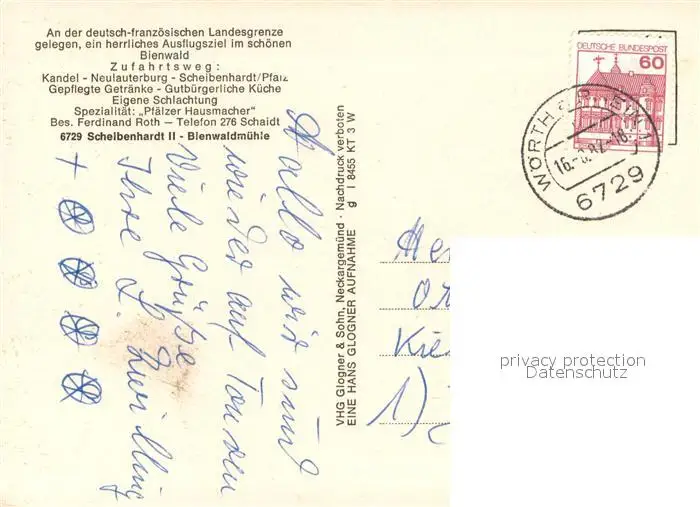 An der deutsch-französischen Landesgrenze
gelegen, ein herrliches Ausflugsziel im schönen
Bienwald
Zufahrtsweg:
Kandel - Neulauterburg - Scheibenhardt/Pfalz
Gepflegte Getränke - Gutbürgerliche Küche
Eigene Schlachtung
Spezialität: „Pfälzer Hausmacher"
Bes. Ferdinand Roth — Telefon 276 Schaidt
6729 Scheibenhardt II - Bienwaldmühle
Hallo wir sind
wieder auf Touren
Viele Grüße
Ihre L. Zwilling
VHG Glogner & Sohn, Neckargemünd · Nachdruck verboten
EINE HANS GLOGNER AUFNAHME g I 8455 KT 3 W
DEUTSCHE BUNDESPOST
60
WÖRTH
6729
1)
privacy protection
Datenschutz